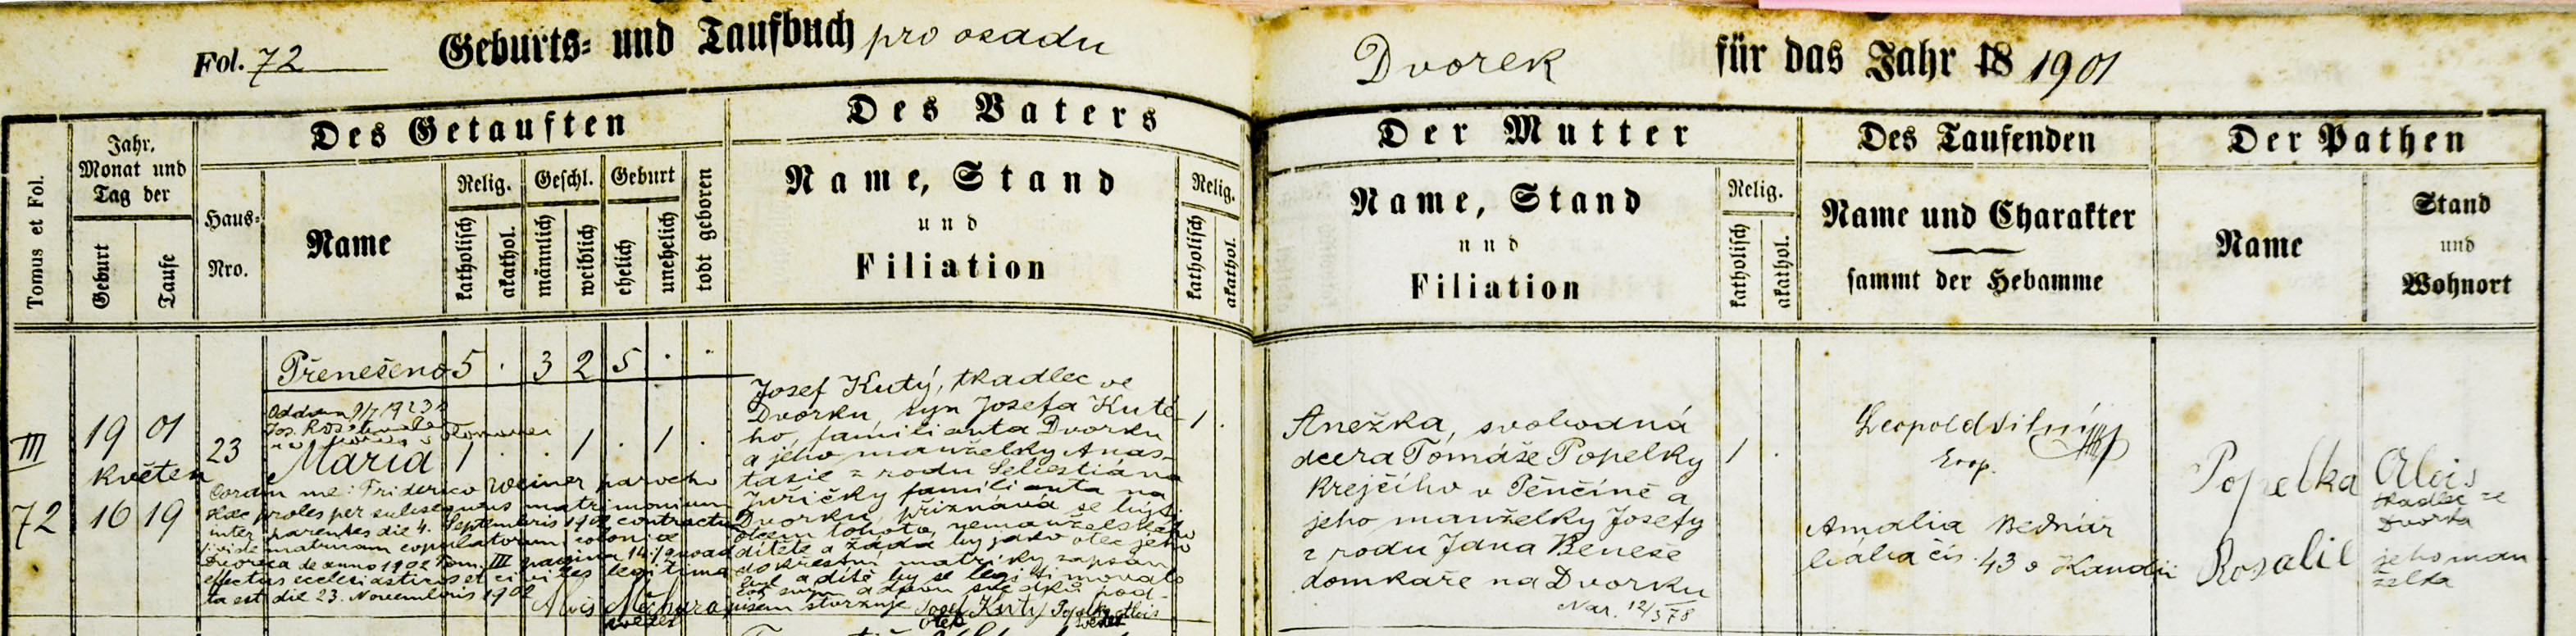 Fol. 72 Geburts- und Taufbuch pro osadu Dvorek für das Jahr 18 1901
Tomus et Fol.
Jahr, Monat und Tag der
Geburt
Taufe
Des Getauften
Haus-Nro.
Name
Relig.
katholisch
akathol.
Geschl.
männlich
weiblich
Geburt
ehelich
unehelich
todt geboren
Des Vaters
Name, Stand
und
Filiation
Relig.
katholisch
akathol.
Der Mutter
Name, Stand
und
Filiation
Relig.
katholisch
akathol.
Des Taufenden
Name und Charakter
sammt der Hebamme
Der Pathen
Name
Stand
und
Wohnort
Přenešeno 5 . 3 2 5 . .
III
72
19 01
květen
16 19
23
Maria 1 . . 1 . 1 .
Coram me: Friderico Weiner parocho
Haec proles per subsequens matrimonium
inter parentes die 4. Septembris 1902 contractum
(vide matricam copulatorum coloniae
Dvorca de anno 1902 Tom. III pagina 14.) quoad
effectus ecclesiasticos et civiles legitima
ta est die 23. Novembris 1902
Alois
svědek
Josef Kutý, tkadlec ve
Dvorku, syn Josefa Kuté-
ho, familianta Dvorku
a jeho manželky Anas-
tasie z rodu Sebestiána
Juřičky familianta na
Dvorku, přiznává se býti
otcem tohoto nemanželského
dítěte a žádá by jako otec jeho
do křestní matriky zapsán
byl a dítě by se legitimovalo
což svým a dvou svědků pod-
pisem stvrzuje Josef Kutý Popelka Alois
otec svědek
1 .
Anežka, svobodná
dcera Tomáše Popelky
krejčího v Pěnčíně a
jeho manželky Josefy
z rodu Jana Beneše
domkaře na Dvorku
Nar. 12/5 78
1 .
Leopold Silný
Coop.
Amalia Bednář
bába čís. 43 v Kandii
Popelka Alois
tkadlec ze
Dvorka
Rosalie
jeho man
želka